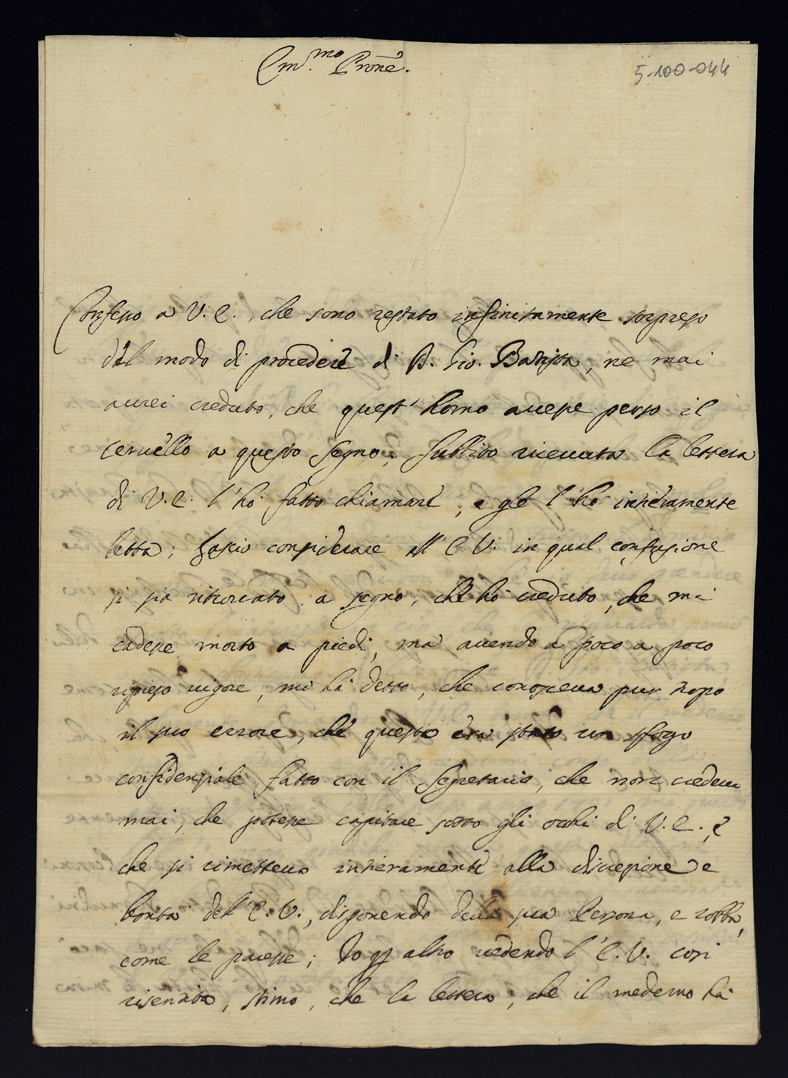 Em.mo Prone.
5-100-044
Confesso a V. E., che sono restato infinitamente sorpreso
dal modo di procedere di D. Gio. Battista, ne mai
aurei creduto, che quest' homo auesse perso il
ceruello a questo segno; subbito riceuuta la lettera
di V. E. l'hò fatto chiamare, e gle l'hò intieramente
letta; lascio considerare all' E. V. in qual confusione
si sia ritrouato a segno, che hò creduto, che mi
cadesse morto a piedi, ma auendo a poco a poco
ripreso uigore, mi hà detto, che conosceua pur tropo
il suo errore, che questo era stato un sfogo
confidenziale fatto con il Segretario, che non credeua
mai, che potesse capitare sotto gli occhi di V. E., e
che si rimetteua intieramente alla discrezione e
bontà dell' E. V., disponendo della sua Persona, e robba,
come le paresse; Io per altro uedendo l' E. V. così
risentita, stimo, che la lettera, che il medemo hà